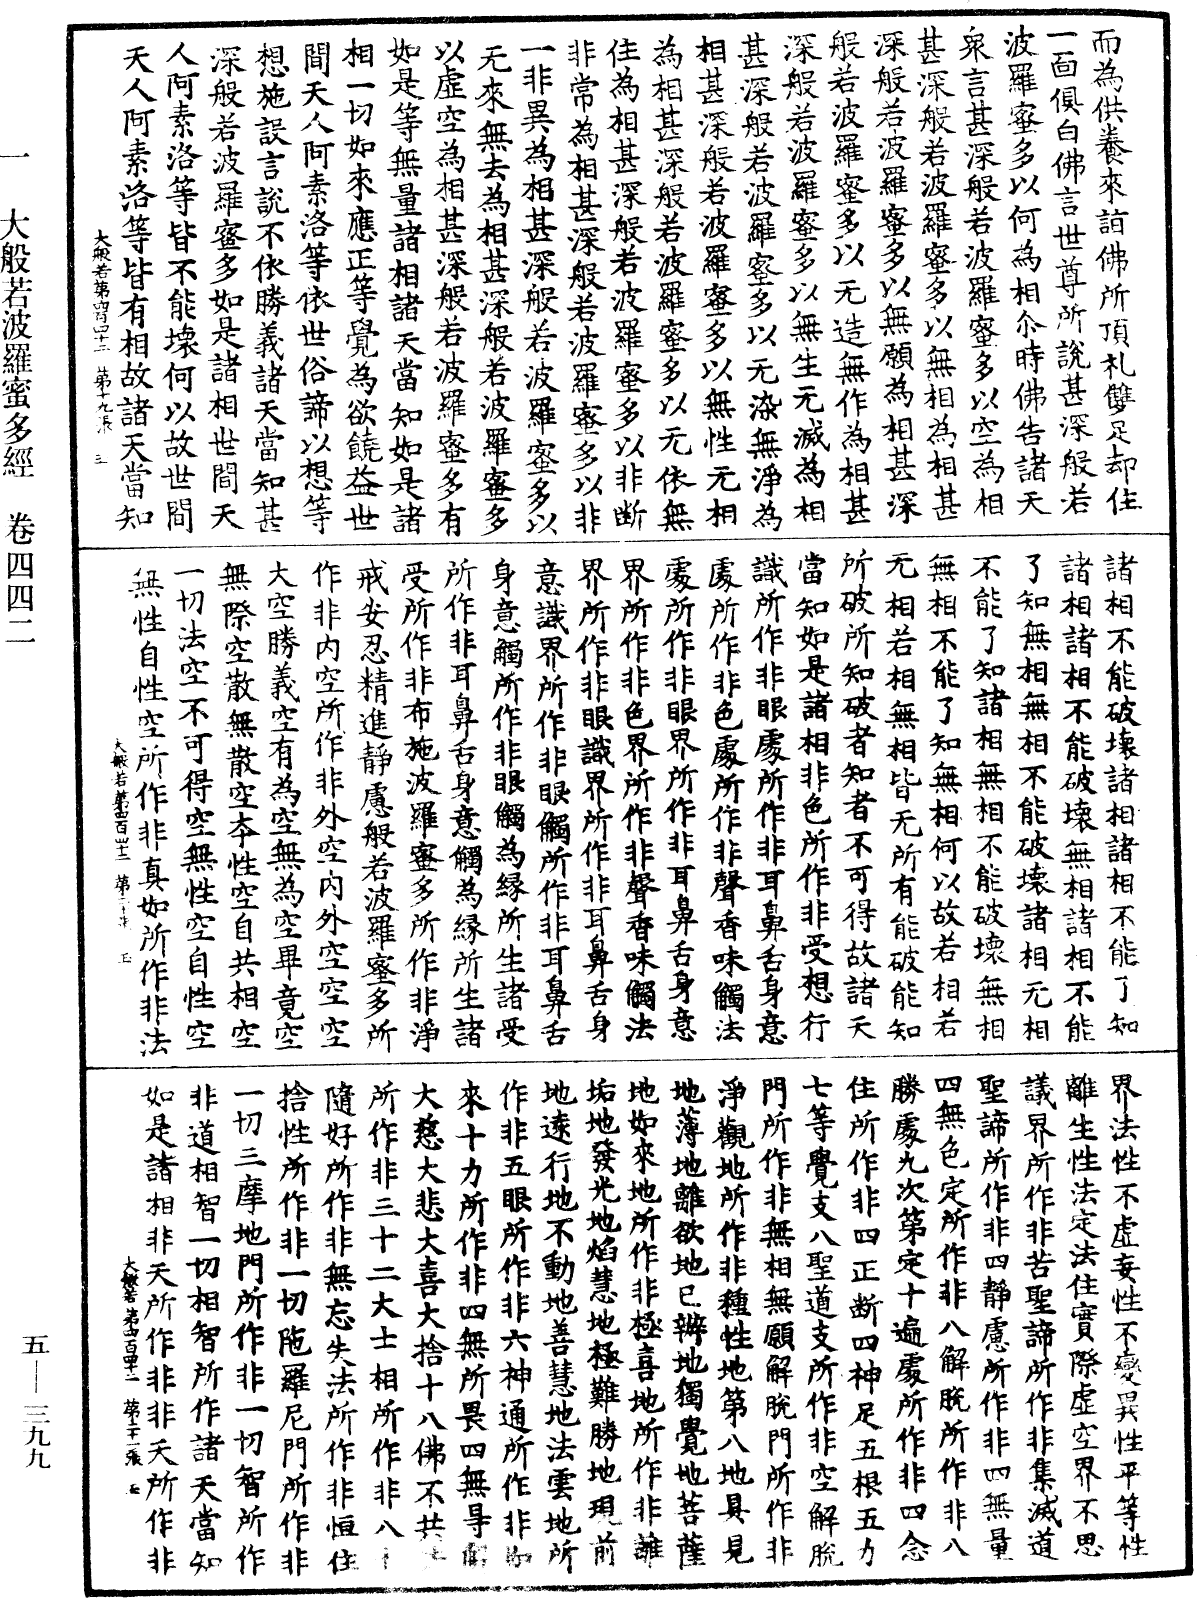 而為供養來詣佛所頂礼雙足却住
一面俱白佛言世尊所說甚深般若
波羅蜜多以何為相尒時佛告諸天
衆言甚深般若波羅蜜多以空為相
甚深般若波羅蜜多以無相為相甚
深般若波羅蜜多以無願為相甚深
般若波羅蜜多以无造無作為相甚
深般若波羅蜜多以無生无滅為相
甚深般若波羅蜜多以无染無淨為
相甚深般若波羅蜜多以無性无相
為相甚深般若波羅蜜多以无依無
住為相甚深般若波羅蜜多以非断
非常為相甚深般若波羅蜜多以非
一非異為相甚深般若波羅蜜多以
无來無去為相甚深般若波羅蜜多
以虛空為相甚深般若波羅蜜多有
如是等無量諸相諸天當知如是諸
相一切如來應正等覺為欲饒益世
間天人阿素洛等依世俗諦以想等
想施設言說不依勝義諸天當知甚
深般若波羅蜜多如是諸相世間天
人阿素洛等皆不能壞何以故世間
天人阿素洛等皆有相故諸天當知
大般若第四百四十二 第十九張
諸相不能破壞諸相諸相不能了知
諸相諸相不能破壞無相諸相不能
了知無相無相不能破壞諸相无相
不能了知諸相無相不能破壞無相
無相不能了知無相何以故若相若
无相若相無相皆无所有能破能知
所破所知破者知者不可得故諸天
當知如是諸相非色所作非受想行
識所作非眼處所作非耳鼻舌身意
處所作非色處所作非聲香味觸法
處所作非眼界所作非耳鼻舌身意
界所作非色界所作非聲香味觸法
界所作非眼識界所作非耳鼻舌身
意識界所作非眼觸所作非耳鼻舌
身意觸所作非眼觸為緣所生諸受
所作非耳鼻舌身意觸為緣所生諸
受所作非布施波羅蜜多所作非淨
戒安忍精進靜慮般若波羅蜜多所
作非內空所作非外空內外空空空
大空勝義空有為空無為空畢竟空
無際空散無散空夲性空自共相空
一切法空不可得空無性空自性空
無性自性空所作非真如所作非法
大般若第四百四十二 第二十張
界法性不虛妄性不變異性平等性
離生性法定法住實際虛空界不思
議界所作非苦聖諦所作非集滅道
聖諦所作非四靜慮所作非四無量
四無色定所作非八解脫所作非八
勝處九次第定十遍處所作非四念
住所作非四正断四神足五根五力
七等覺支八聖道支所作非空解脫
門所作非無相無願解脫門所作非
淨觀地所作非種性地第八地具見
地薄地離欲地已辦地獨覺地菩薩
地如來地所作非極喜地所作非離
垢地發光地焰慧地極難勝地現前
地遠行地不動地善慧地法雲地所
作非五眼所作非六神通所作非如
來十力所作非四無所畏四無㝵解
大慈大悲大喜大捨十八佛不共法
所作非三十二大士相所作非八十
隨好所作非無忘失法所作非恒住
捨性所作非一切陁羅尼門所作非
一切三摩地門所作非一切智所作
非道相智一切相智所作諸天當知
如是諸相非天所作非非天所作非
大般若第四百四十二 第二十一張
一 大般若波羅蜜多經 卷四四二
五—三九九